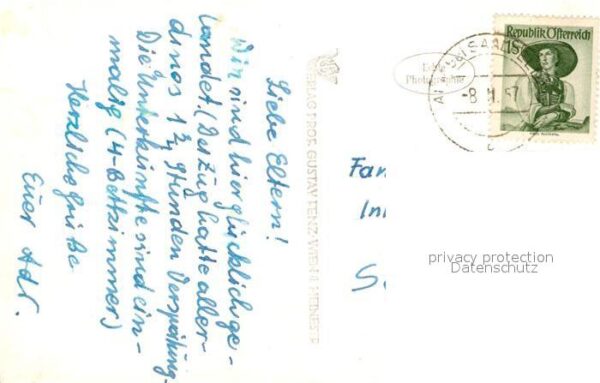 Liebe Eltern!
Wir sind hier glücklich ge-
landet. (Der Zug hatte aller-
dings 1 3/4 Stunden Verspätung.
Die Unterkünfte sind ein-
malig (4-Bettzimmer)
Herzlichs Grüße
Euer Adr.
VERLAG PROF. GUSTAV
WIEN
Echte
Photographie
Republik Österreich
1S
-8. II. 57
c
Fan
In
S
privacy protection
Datenschutz